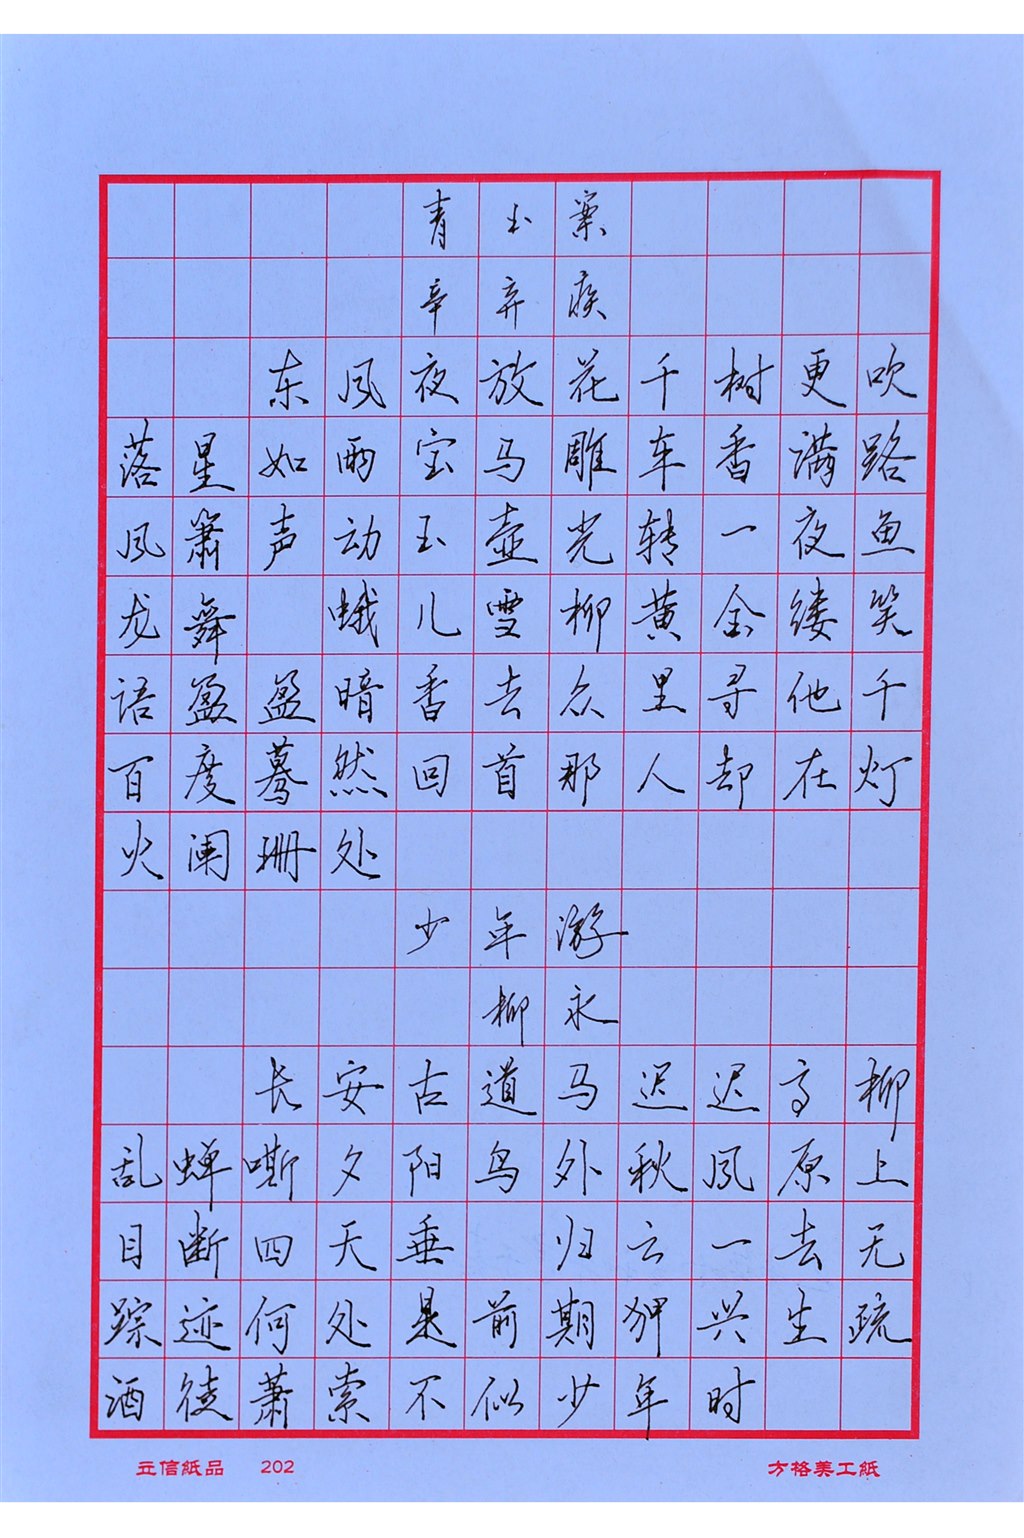 青玉案
辛弃疾
东风夜放花千树更吹
落星如雨宝马雕车香满路
风箫声动玉壶光转一夜鱼
龙舞 蛾儿雪柳黄金缕笑
语盈盈暗香去众里寻他千
百度蓦然回首那人却在灯
火阑珊处
少年游
柳永
长安古道马迟迟高柳
乱蝉嘶夕阳鸟外秋风原上
目断四天垂 归云一去无
踪迹何处是前期狎兴生疏
酒徒萧索不似少年时
立信紙品 202 方格美工紙